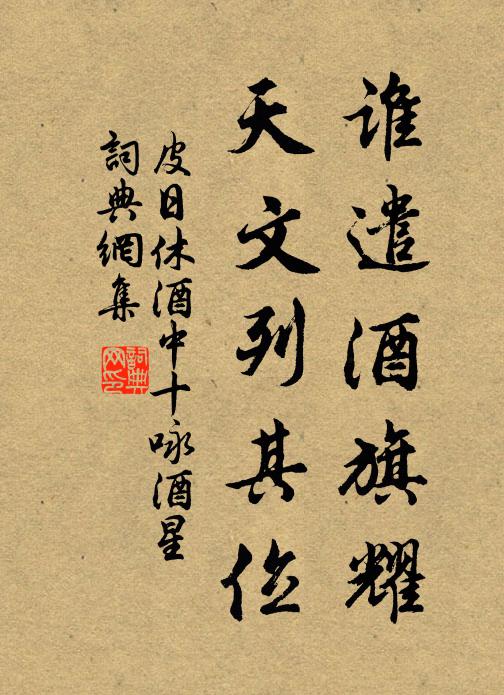 谁遣酒旗耀
天文列其位
皮日休酒中十咏酒星
詞典網集
詞典网印